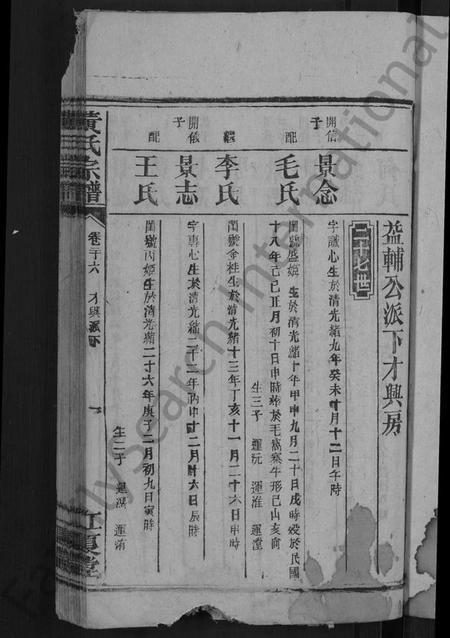 益輔公派下才興房
二十七世
開信子
景念
字誠心生於清光緒九年癸未十月十二日午時
配
毛氏
閨號盛姬生於清光緒十年甲申九月二十日戌時歿於民國
十八年己巳正月初十日申時葬於毛窩寨牛形巳山亥向
生三子 運沅 運淮 運瀅
繼
李氏
閨號金姓生於清光緒十三年丁亥十一月二十六日申時
開儀子
景志
字專心生於清光緒二十二年丙申十二月廿六日辰時
配
王氏
閨號丙姬生於清光緒二十六年庚子二月初九日寅時
生二子 運 運
黃氏宗譜
卷二十六 才興派下
一
江夏堂
FamilySearch International